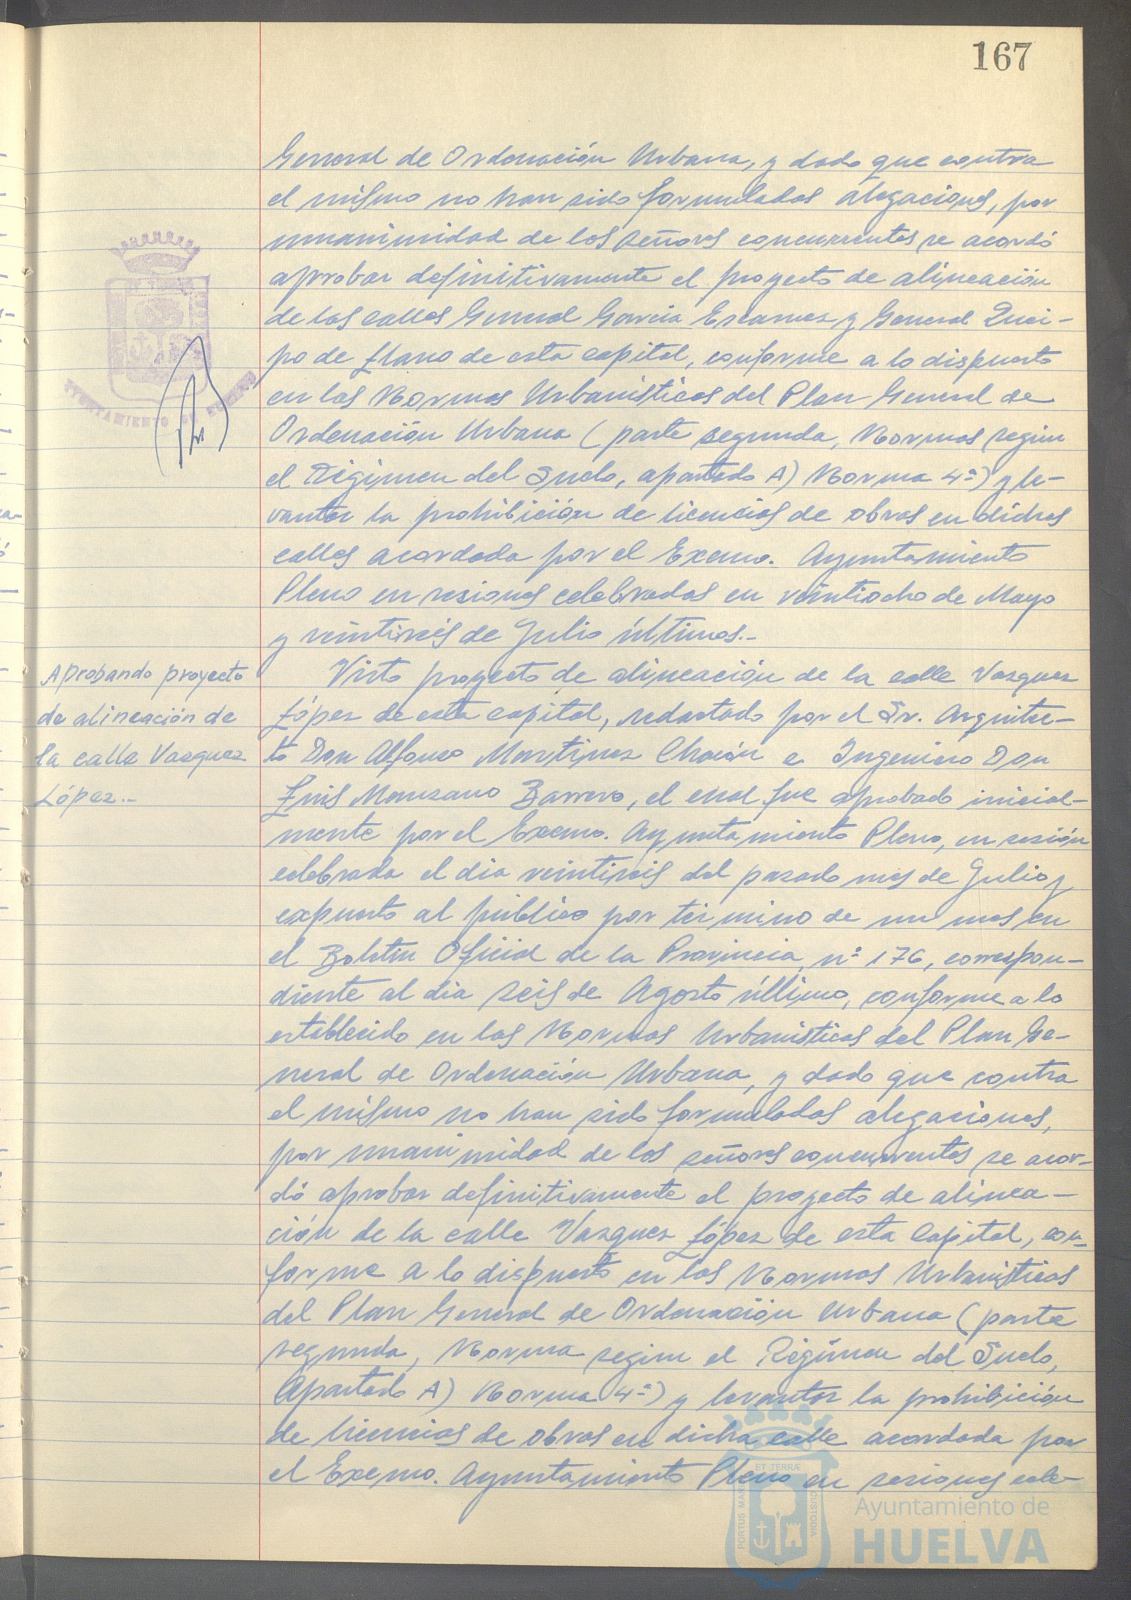 167
General de Ordenación Urbana, y dado que contra
el mismo no han sido formulados alegaciones, por
unanimidad de los señores concurrentes se acordó
aprobar definitivamente el proyecto de alineación
de las calles General García Escamez y General Quei-
po de Llano de esta capital, conforme a lo dispuesto
en las Normas Urbanísticas del Plan General de
Ordenación Urbana (parte segunda, Normas según
el Régimen del Suelo, apartado A) Norma 4ª) y le-
vantar la prohibición de licencias de obras en dichas
calles acordada por el Excmo. Ayuntamiento
Pleno en sesiones celebradas en veintiocho de Mayo
y veintiseis de Julio últimos.-
Aprobando proyecto
de alineación de
la calle Vazquez
López.-
Visto proyecto de alineación de la calle Vazquez
López de esta capital, redactado por el Sr. Arquitec-
to Don Alfonso Martinez Chacón e Ingeniero Don
Luis Manzano Barrero, el cual fue aprobado inicial-
mente por el Excmo. Ayuntamiento Pleno, en sesión
celebrada el dia veintiseis del pasado mes de Julio y
expuesto al público por término de un mes en
el Boletin Oficial de la Provincia nº 176, correspon-
diente al dia seis de Agosto último, conforme a lo
establecido en las Normas Urbanísticas del Plan Ge-
neral de Ordenación Urbana, y dado que contra
el mismo no han sido formulados alegaciones,
por unanimidad de los señores concurrentes se acor-
dó aprobar definitivamente el proyecto de alinea-
ción de la calle Vazquez López de esta Capital, con-
forme a lo dispuesto en las Normas Urbanísticas
del Plan General de Ordenación Urbana (parte
segunda, Norma según el Régimen del Suelo,
Apartado A) Norma 4ª) y levantar la prohibición
de licencias de obras en dicha calle acordada por
el Excmo. Ayuntamiento Pleno en sesiones cele-
ET TERRAE
PORTUS MARIS
CUSTODIA
Ayuntamiento de
HUELVA